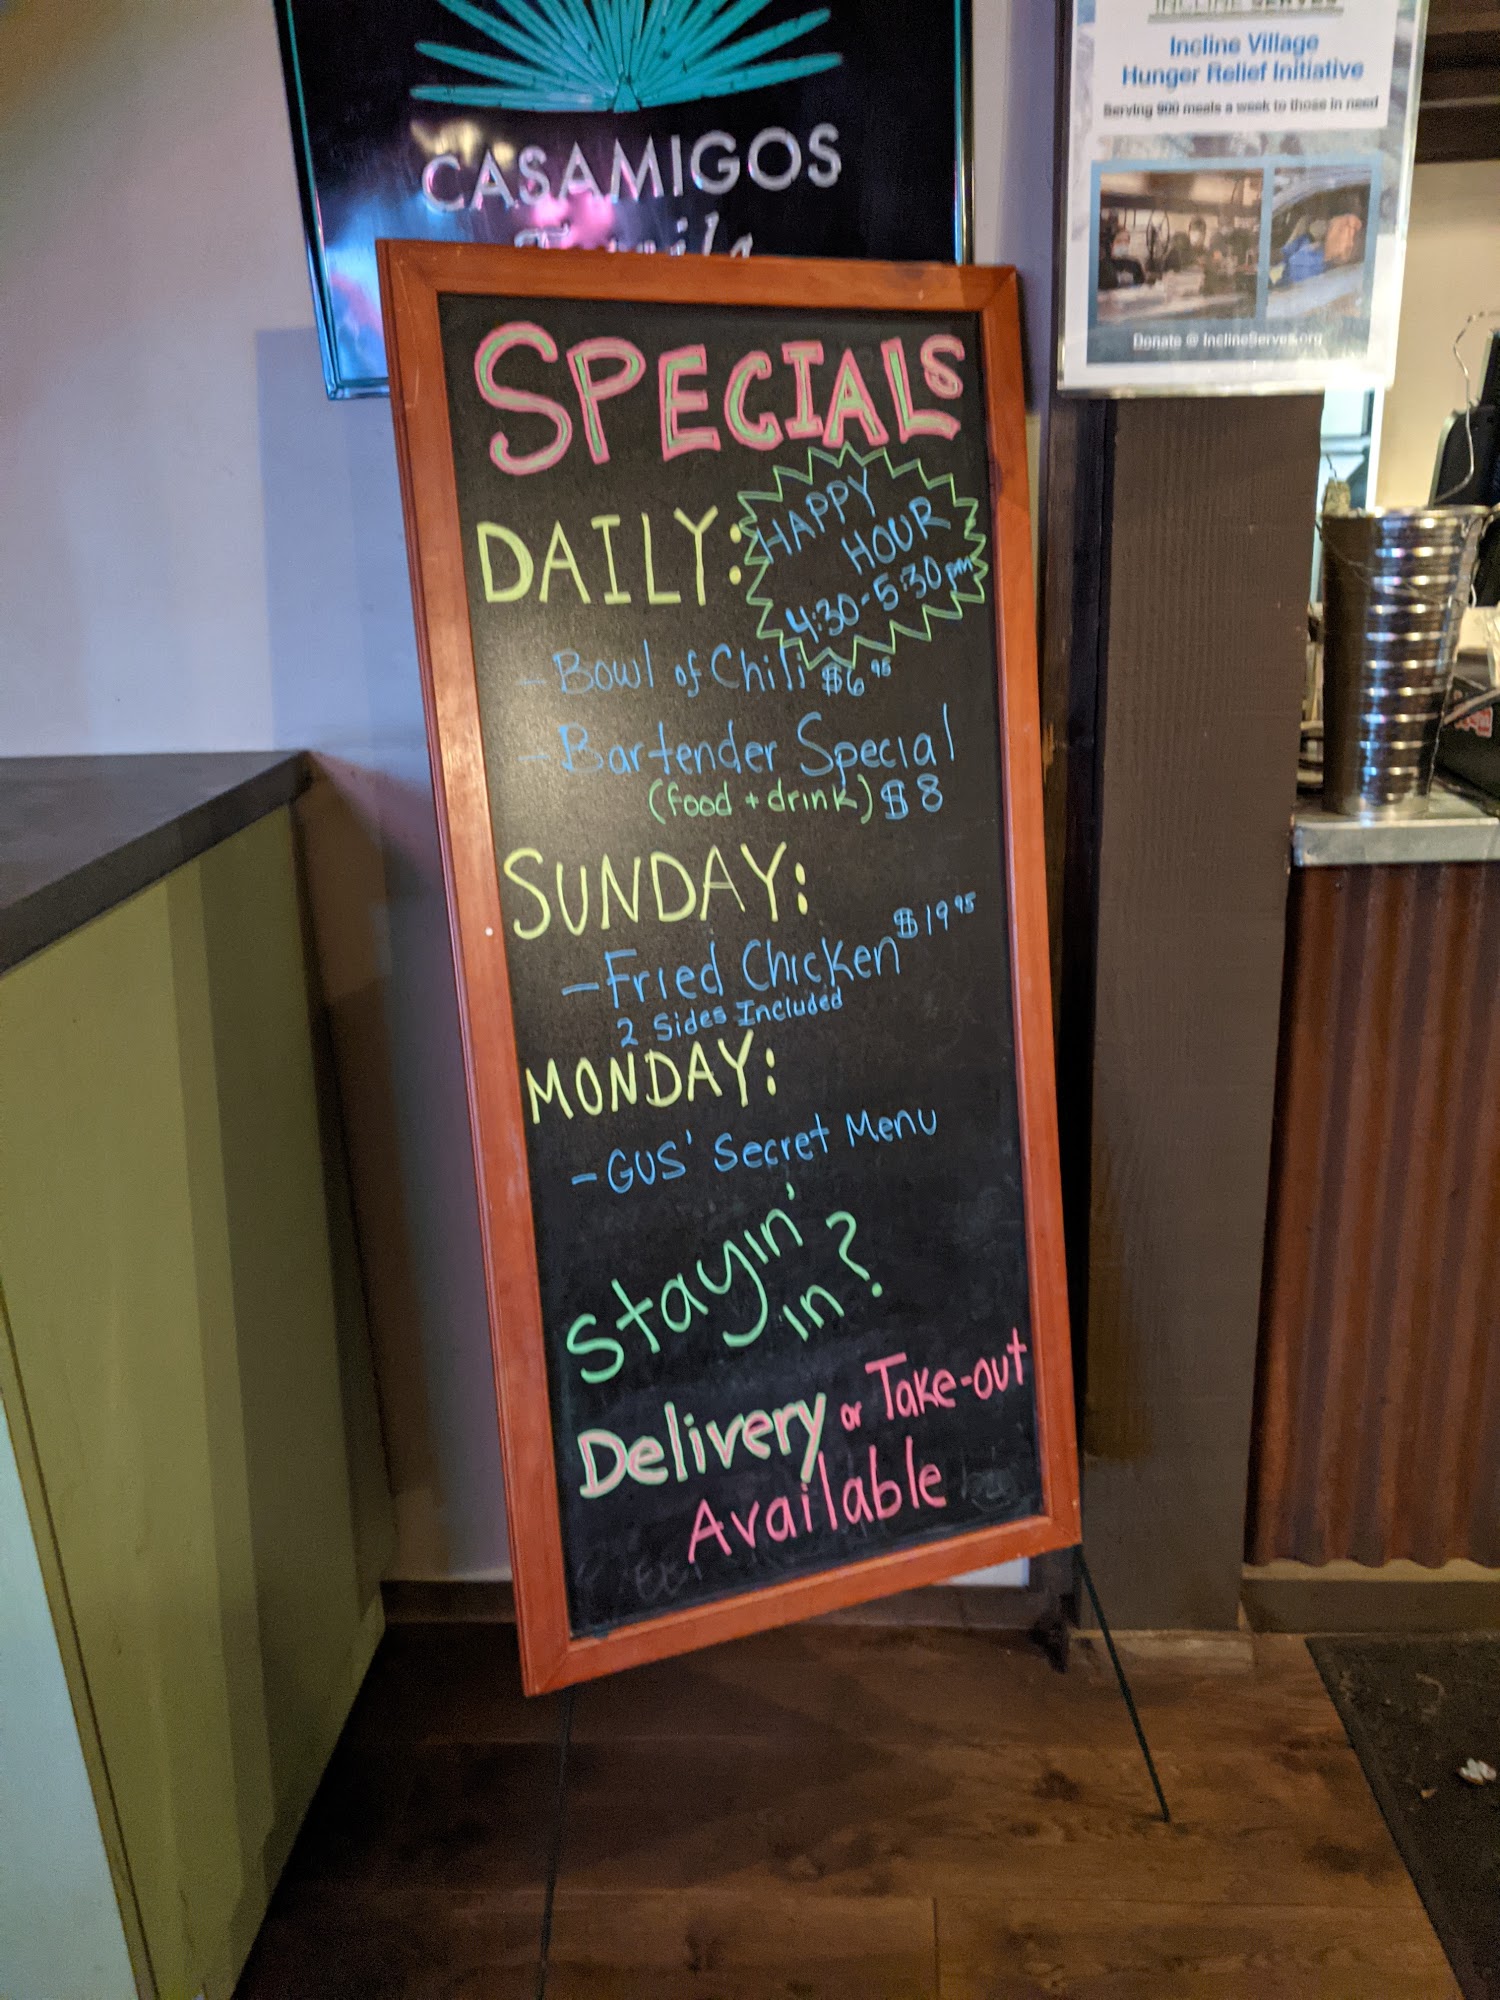 CASAMIGOS
Tequila
INCLINE SERVES
Incline Village
Hunger Relief Initiative
Serving 900 meals a week to those in need
Donate @ InclineServes.org
SPECIALS
DAILY:
HAPPY
HOUR
4:30-5:30pm
- Bowl of Chili $6.95
- Bartender Special
(food + drink) $8
SUNDAY:
- Fried Chicken $19.95
2 Sides Included
MONDAY:
- GUS' Secret Menu
Stayin'
in?
Delivery or Take-out
Available